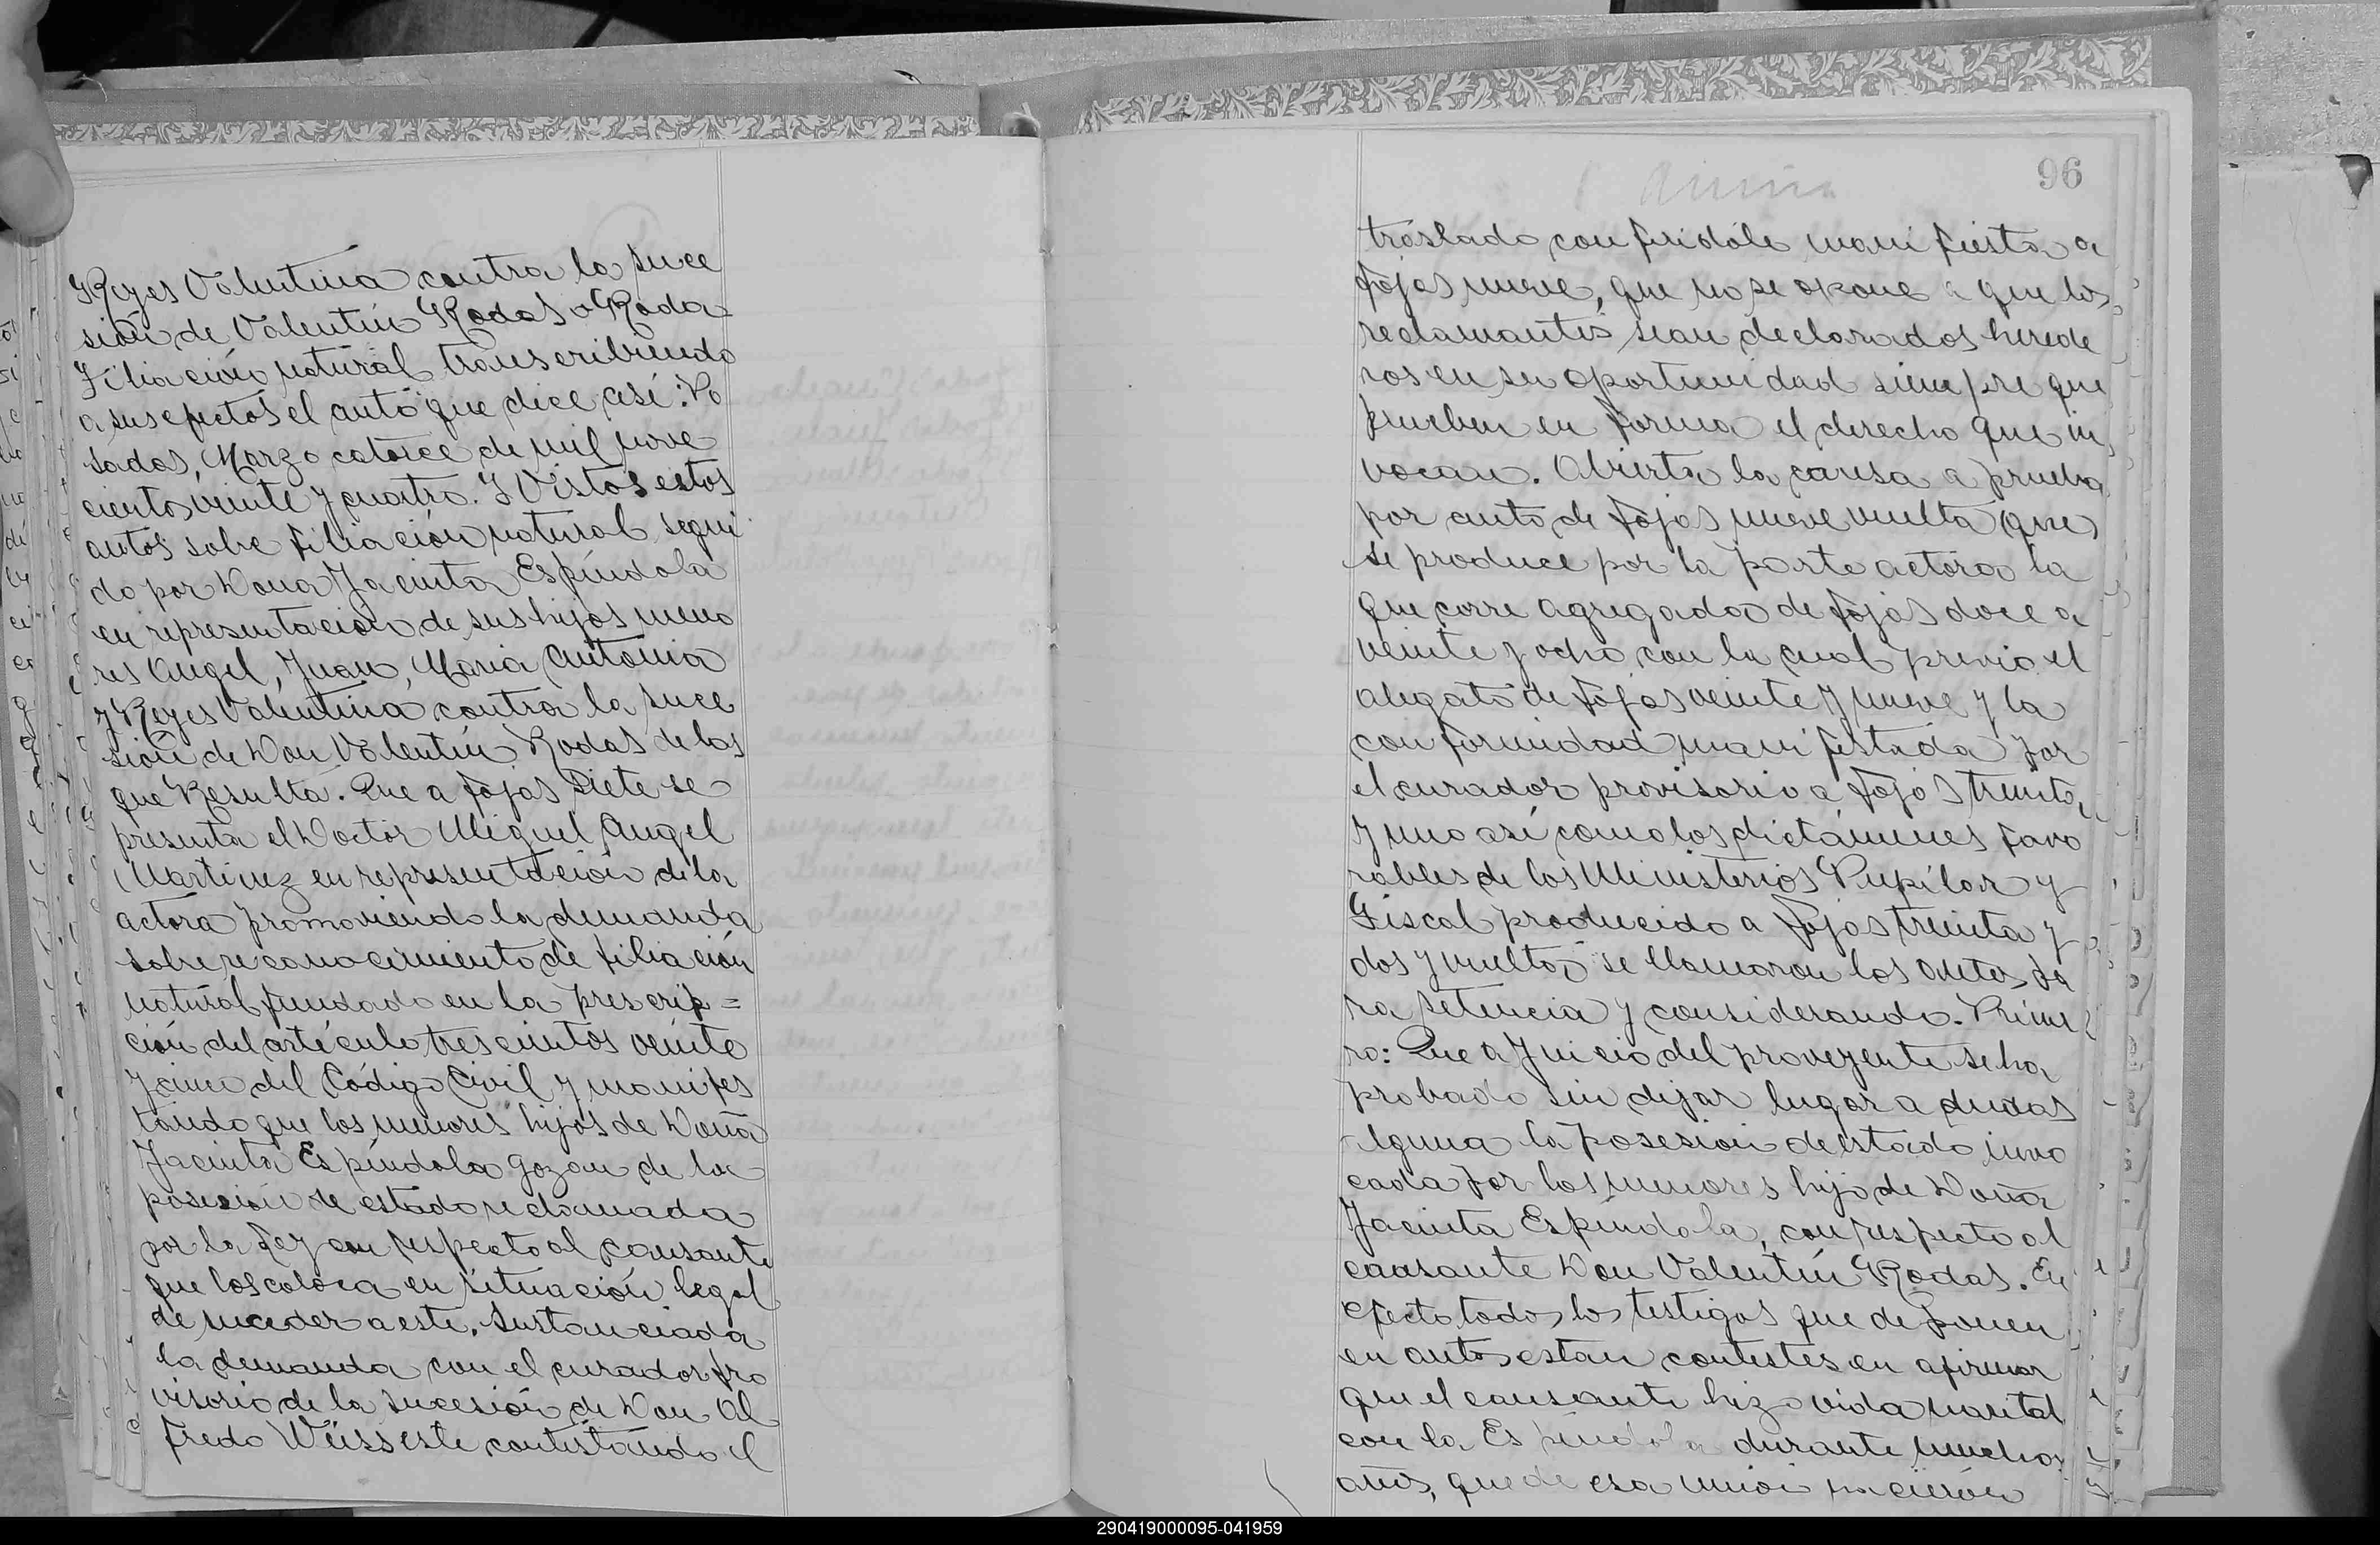 Reyes Valentina contra la suce
sión de Valentín Rodas o Roda
Filiación natural transcribiendo
a sus efectos el auto que dice así: Po
sadas, Marzo catorce de mil nove
cientos veinte y cuatro. Y Vistos estos
autos sobre filiación natural segui
do por Dona Jacinta Espíndola
en representación de sus hijos meno
res Angel, Juan, Maria Antonia
y Reyes Valentina contra la suce
sión de Don Valentín Rodas de los
que Resulta. Que a fojas siete se
presenta el Doctor Miguel Angel
Martinez en representación de la
actora promoviendo la demanda
sobre reconocimiento de filiación
natural fundado en la prescrip=
ción del artículo trescientos veinte
y cinco del Código Civil y manifes
tando que los menores hijos de Doña
Jacinta Espíndola gozan de la
posesión de estado reclamada
por la ley con respecto al causante
que los coloca en situación legal
de suceder a este. Sustanciada
la demanda con el curador pro
visorio de la sucesión de Don Al
fredo Weiss este contestando el
96
traslado confiridóle manifiesta a
fojas nueve, que no se opone a que los
reclamantes sean declarados herede
ros en su oportunidad siempre que
prueben en forma el derecho que in
vocan. Abierta la causa a prueba
por auto de fojas nueve vuelta que
se produce por la parte actora la
que corre agregada de fojas doce a
veinte y ocho con la cual previo el
alegato de fojas veinte y nueve y la
conformidad manifestada por
el curador provisorio a fojas treinta
y uno así como los dictámenes favo
rables de los Ministerios Pupilar y
Fiscal producido a fojas treinta y
dos y vuelta se llamaron los autos pa
ra setencia y considerando. Prime
ro: Que a Juicio del proveyente se ha
probado sin dejar lugar a dudas
alguna la posesion de estado invo
cada por los menores hijo de Doña
Jacinta Espíndola, con respecto al
causante Don Valentín Rodas. En
efecto todos los testigos que deponen
en autos están contestes en afirmar
que el causante hizo vida marital
con la Espíndola durante muchos
años, que de esa unión nacieron
290419000095-041959